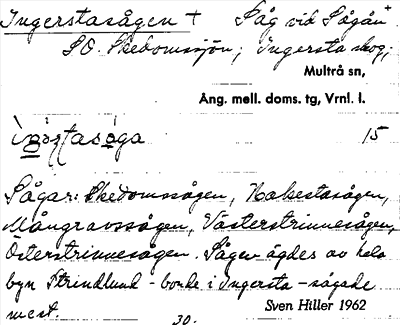 Ingerstasågen + Såg vid Sågån+
SO. Skedomssjön; Ingersta skog;
Multrå sn,
Ång. mell. doms. tg, Vrnl. l.
15
Sågar: Skedomssågen, Nakestasågen,
Mångravssågen, Västerstrinnesågen,
Österstrinnesågen. Sågen ägdes av hela
byn Strindlund - bonde i Ingersta - sågade
mest.
Sven Hiller 1962
30.